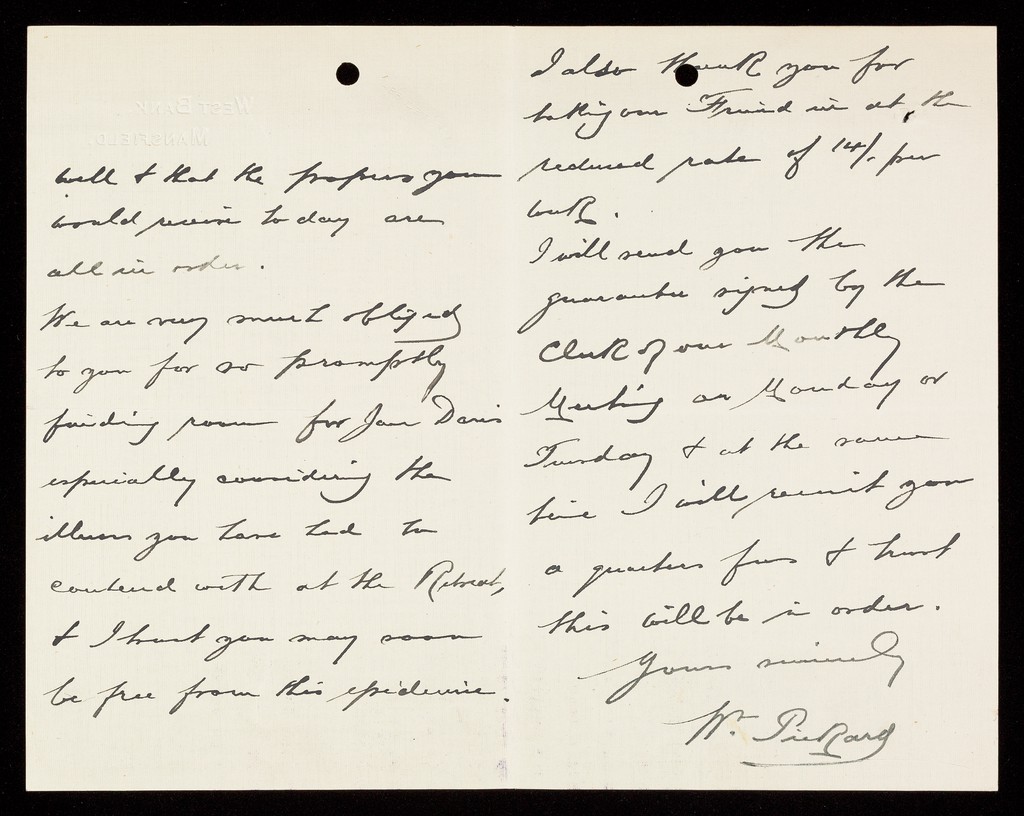 West Bank
Mansfield
well & that the papers you
would receive to day are
all in order.
We are very much obliged
to you for so promptly
finding room for Jane Davis
especially considering the
illness you have had to
contend with at the Retreat,
& I trust you may soon
be free from this epidemic.
I also thank you for
taking our Friend in at the
reduced rate of 14/- per
week.
I will send you the
guarantee signed by the
Clerk of our Monthly
Meeting on Monday or
Tuesday & at the same
time I will remit you
a quarters fees & trust
this will be in order.
Yours sincerely
Wm. Pickard